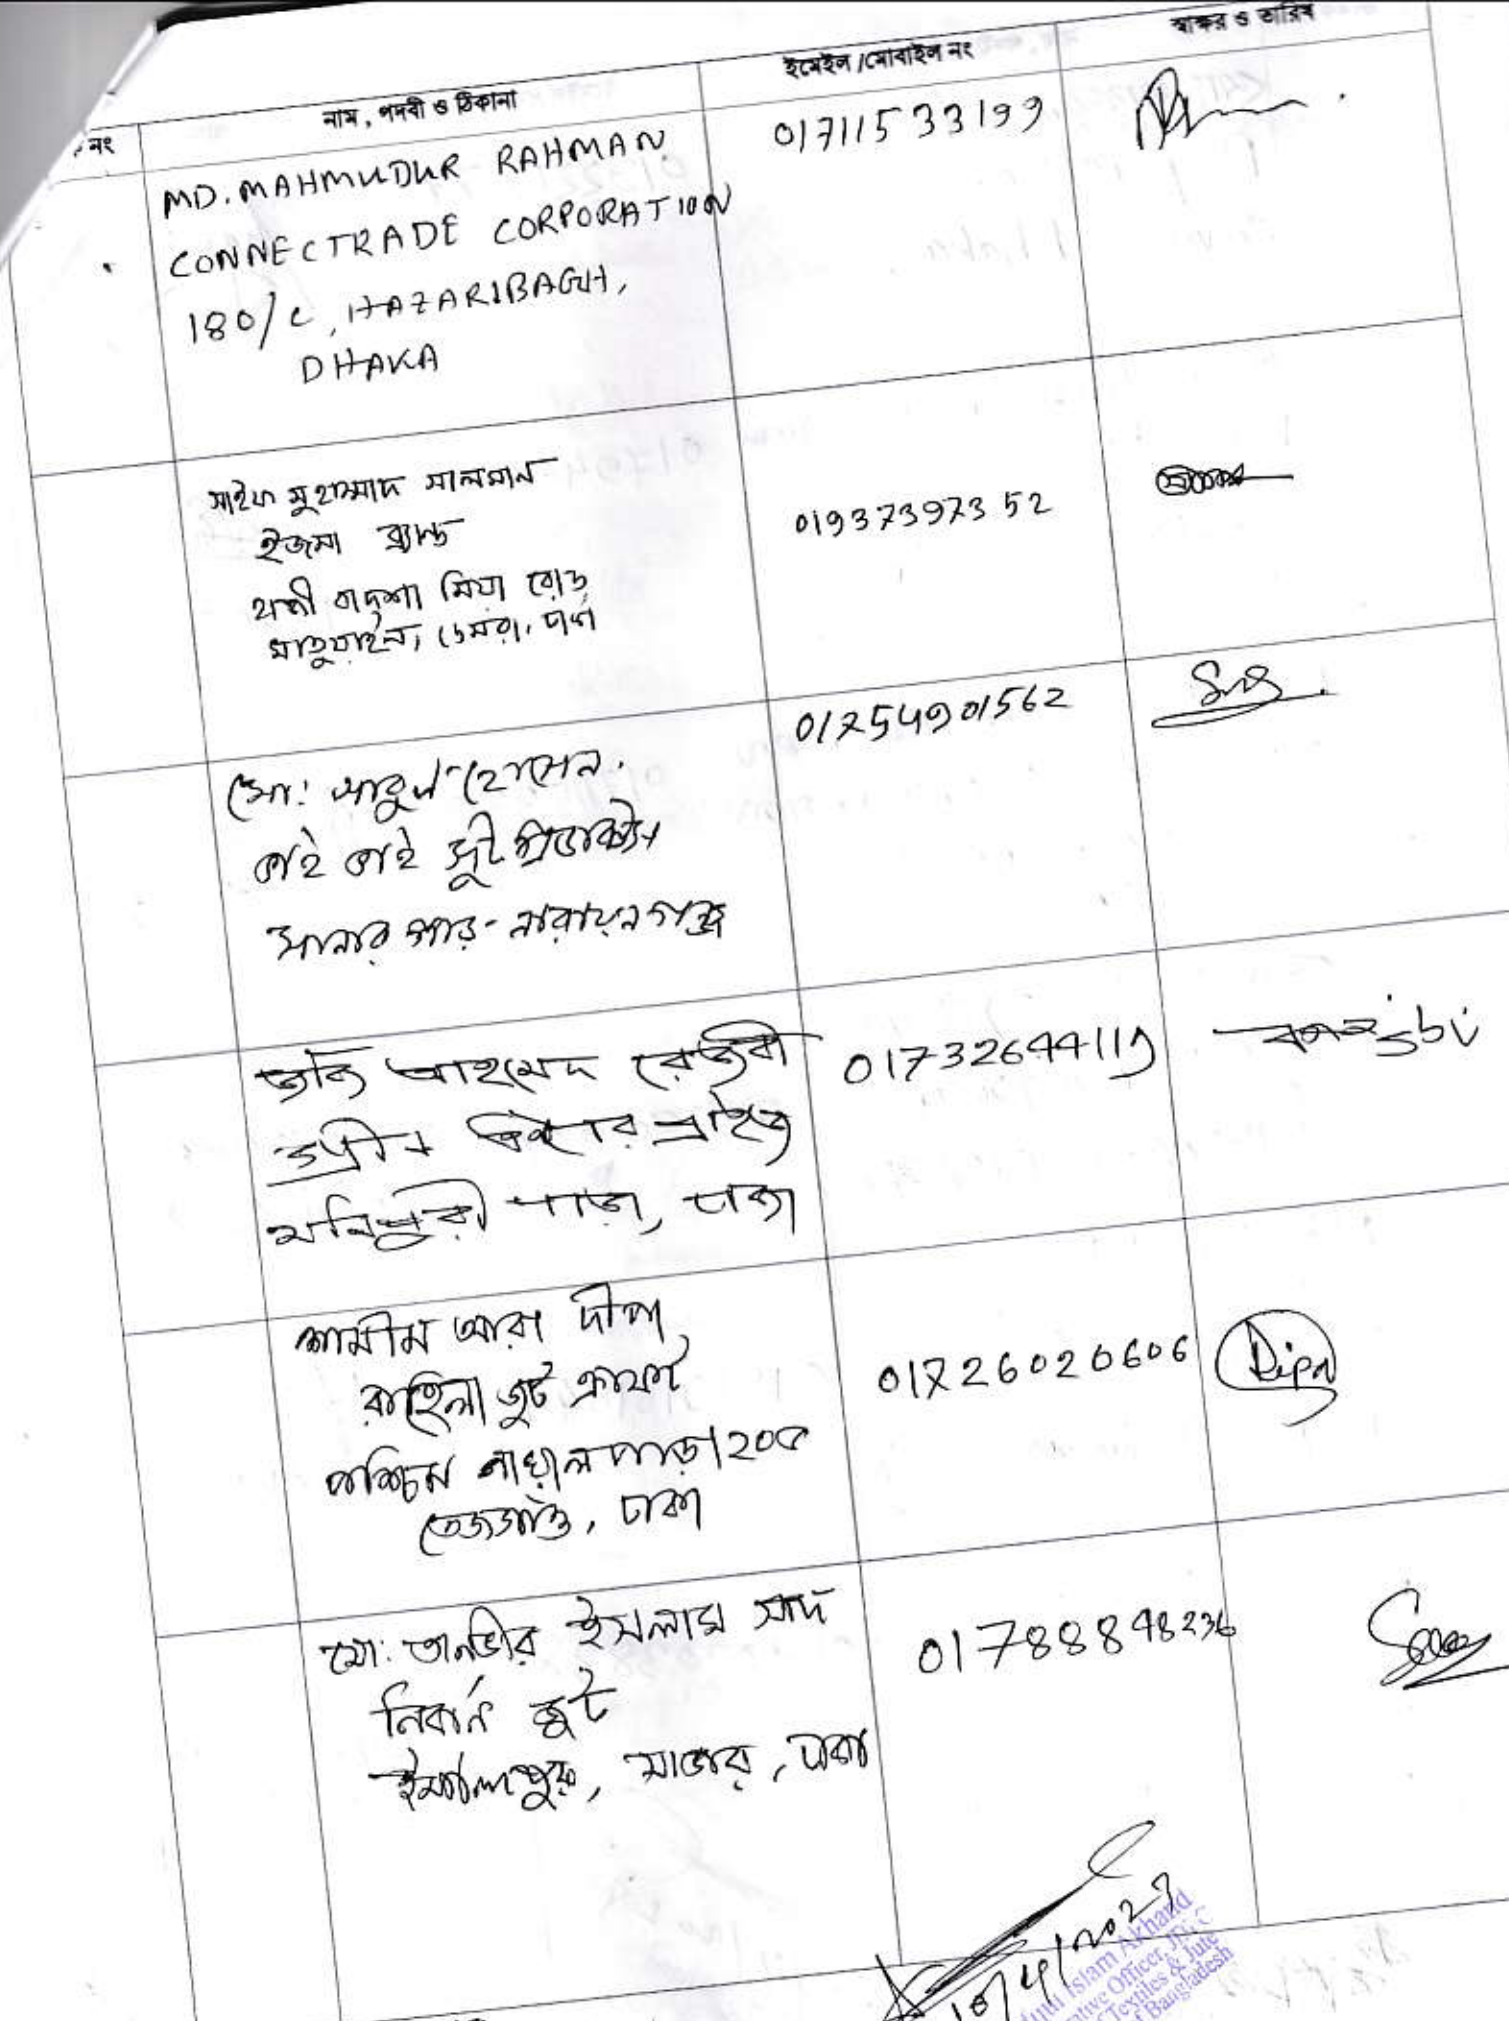 নং
নাম, পদবী ও ঠিকানা
ইমেইল /মোবাইল নং
স্বাক্ষর ও তারিখ
MD. MAHMUDUR RAHMAN
CONNECTRADE CORPORATION
180/C, HAZARIBAGH,
DHAKA
01711533199
সাইফ মুহাম্মাদ সালমান
ইজমা ব্র্যান্ড
হাজী বাদশা মিয়া রোড
মাতুয়াইল, ডেমরা, ঢাকা
01937397352
মো: আবুল হোসেন.
ভাই ভাই জুট প্রডাক্টস
সানার পাড়- নারায়নগঞ্জ
01754901562
আহমেদ রেজবী
মনিপুরী পাড়া, ঢাকা
01732644119
শামীম আরা দীপা
রাহিলা জুট ক্রাফট
পশ্চিম নাখালপাড়া
তেজগাঁও, ঢাকা
01726020606
Dipa
মো: তানভীর ইসলাম সাদ
নির্বান জুট
সাভার, ঢাকা
01788898236
Islam Akhand
Officer, JDPC
Textiles & Jute
Bangladesh